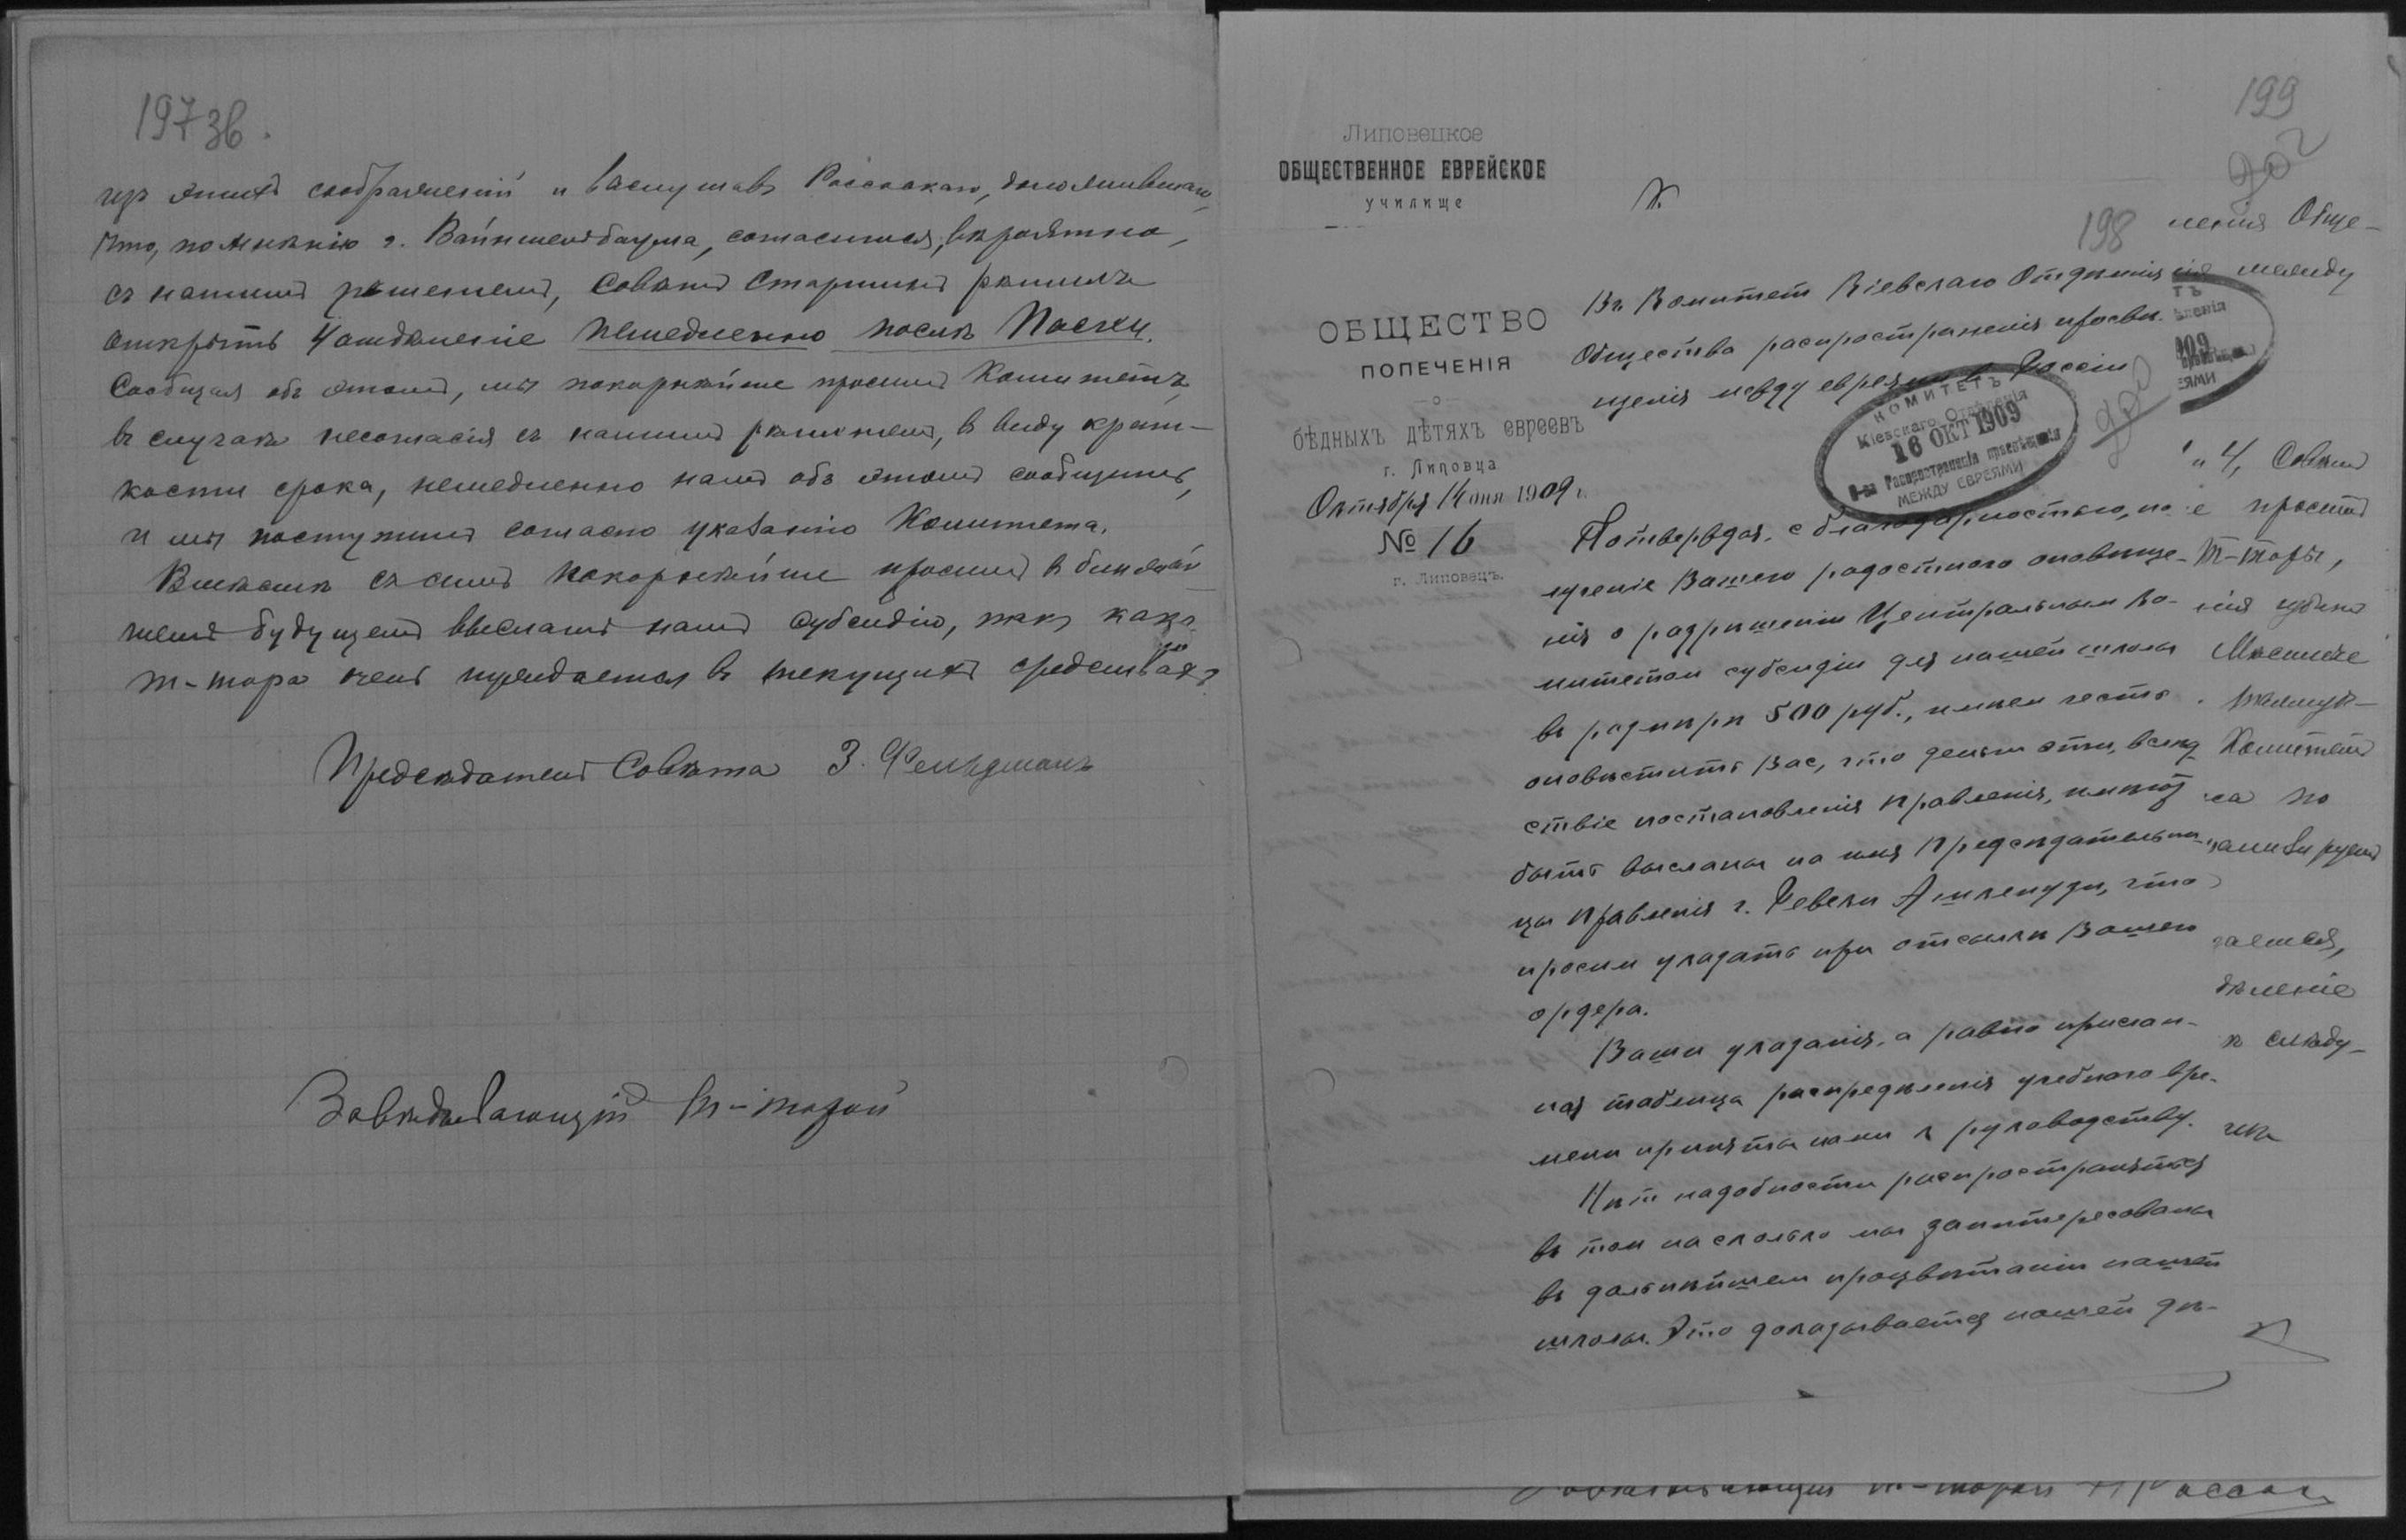 197 зв.
изъ этихъ соображеній и заслушавъ Россскаго, доложившаго,
что, по мнѣнію г. Вайнштейнбаума, согласится, вѣроятно,
съ нашимъ рѣшеніемъ, Совѣтъ Старшинъ рѣшилъ
открыть 4 отдѣленіе немедленно послѣ Пасхи.
Сообщая объ этомъ, мы покорнѣйше просимъ Комитетъ,
въ случаѣ несогласія съ нашимъ рѣшеніемъ, въ виду крат-
кости срока, немедленно намъ объ этомъ сообщить,
и мы поступимъ согласно указанію Комитета.
Вмѣстѣ съ симъ покорнѣйше просимъ в ближай-
шемъ будущемъ выслать намъ субсидію, такъ какъ
т-тора очень нуждается въ текущихъ средствахъ
Предсѣдатель Совѣта З. Фельдманъ
Завѣдывающій т-торой
199
202
198
Липовецкое
ОБЩЕСТВЕННОЕ ЕВРЕЙСКОЕ
училище
ОБЩЕСТВО
ПОПЕЧЕНІЯ
о
бѣдныхъ дѣтяхъ евреевъ
г. Липовца
Октября 14 дня 1909 г.
№ 16
г. Липовецъ.
Въ Комитет Кіевскаго Отдѣленія
Общества распространенія просвѣ-
щенія между евреями в Россіи
КОМИТЕТЪ
Кіевскаго Отдѣленія
16 ОКТ 1909
О-ва Распространенія просвѣщенія
МЕЖДУ ЕВРЕЯМИ
Потверждая, с благодарностью, по-
лученіе Вашего радостного оповѣще-
нія о разрѣшеніи Центральным Ко-
митетом субсидіи для нашей школы
въ размѣрѣ 500 руб., имѣем честь
оповѣстить Вас, что деньги эти, вслѣд-
ствіе постановленія правленія, имѣют
быть высланы на имя Предсѣдательни-
цы правленія г. Ревеки Ашкенузи, что
просим указать при отсылкѣ Вашего
ордера.
Ваши указанія, а равно прислан-
ная таблица распредѣленія учебного вре-
мени приняты нами к руководству.
Нѣт надобности распространяться
въ том насколько мы заинтересованы
въ дальнѣйшем процвѣтаніи нашей
школы. Это доказывается нашей дѣ-
ленія Обще-
ія между
ТЪ
ленія
909
ЕЯМИ
4, Совѣтъ
е просимъ
т-торы,
Мѣстные
Комитетъ
са по
дѣленіе
ѣ слѣду-